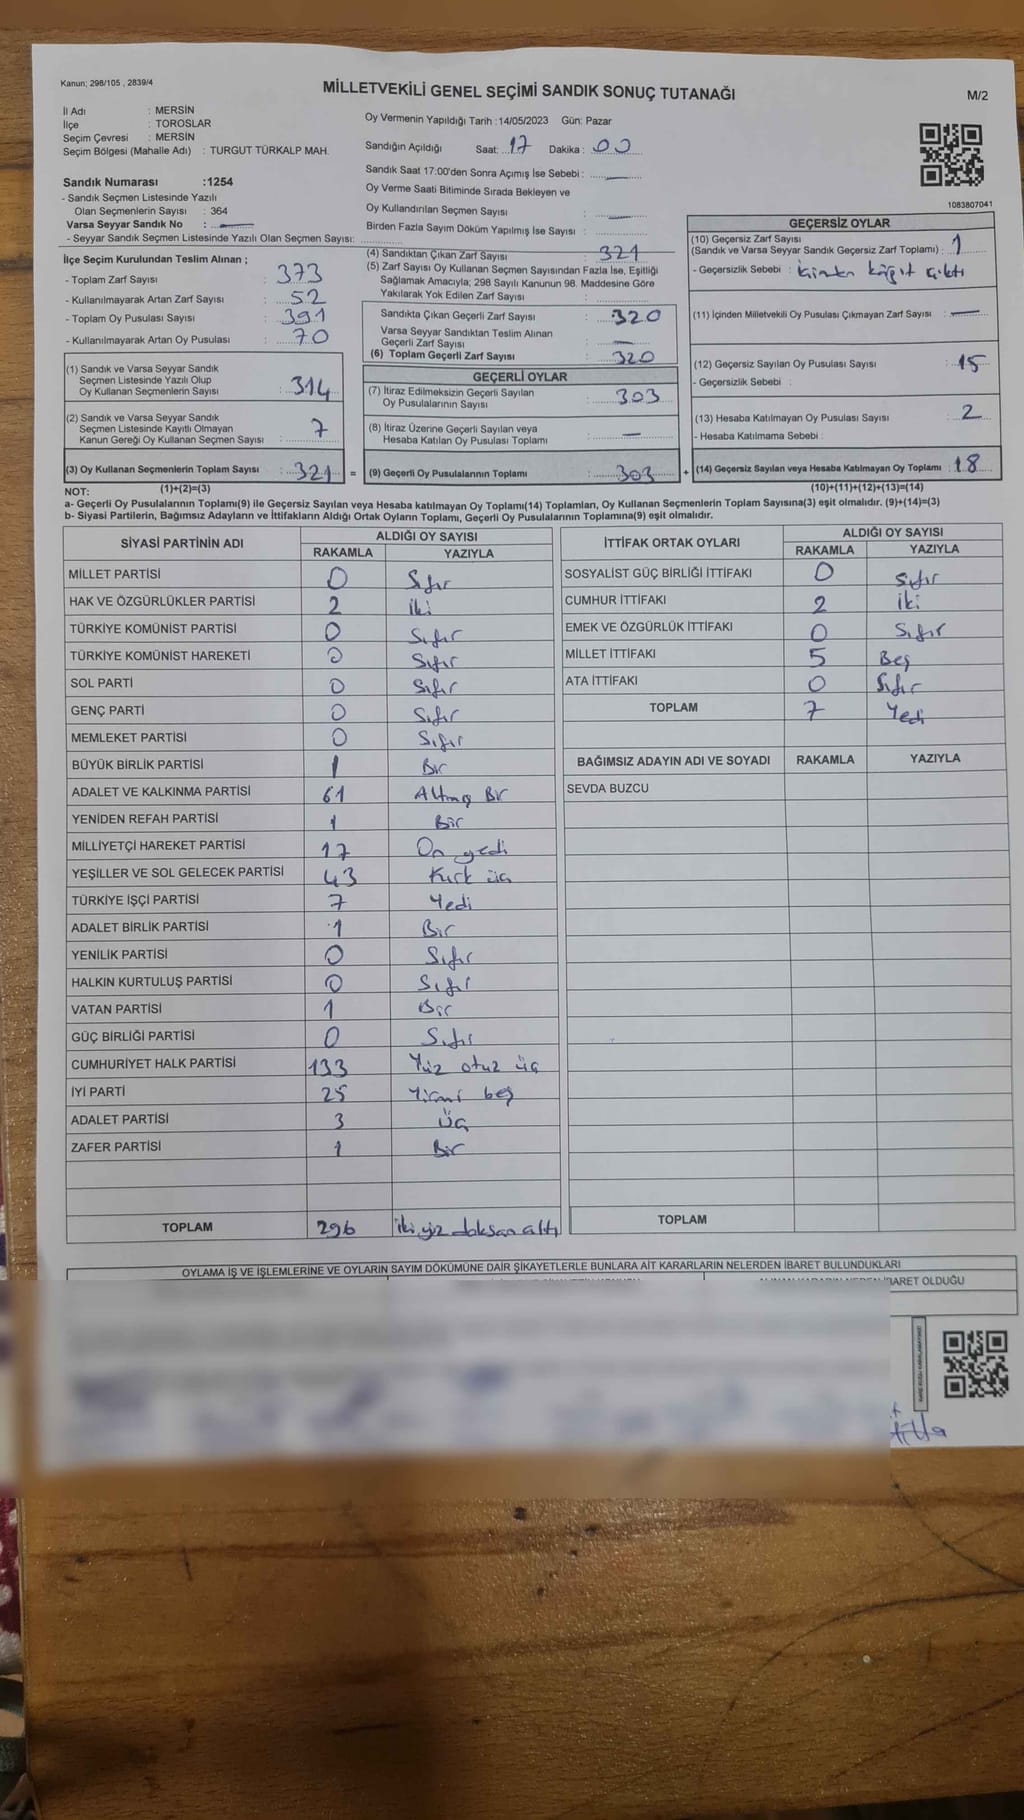 Kanun; 298/105 , 2839/4
MİLLETVEKİLİ GENEL SEÇİMİ SANDIK SONUÇ TUTANAĞI
M/2
İl Adı : MERSİN
İlçe : TOROSLAR
Seçim Çevresi : MERSİN
Seçim Bölgesi (Mahalle Adı) : TURGUT TÜRKALP MAH.
Sandık Numarası :1254
- Sandık Seçmen Listesinde Yazılı
Olan Seçmenlerin Sayısı : 364
Varsa Seyyar Sandık No :
- Seyyar Sandık Seçmen Listesinde Yazılı Olan Seçmen Sayısı:
Oy Vermenin Yapıldığı Tarih :14/05/2023 Gün: Pazar
Sandığın Açıldığı Saat: 17 Dakika : 00
Sandık Saat 17:00'den Sonra Açımış İse Sebebi :
Oy Verme Saati Bitiminde Sırada Bekleyen ve
Oy Kullandırılan Seçmen Sayısı :
Birden Fazla Sayım Döküm Yapılmış İse Sayısı :
1083807041
İlçe Seçim Kurulundan Teslim Alınan ;
- Toplam Zarf Sayısı : 373
- Kullanılmayarak Artan Zarf Sayısı : 52
- Toplam Oy Pusulası Sayısı : 391
- Kullanılmayarak Artan Oy Pusulası : 70
(1) Sandık ve Varsa Seyyar Sandık
Seçmen Listesinde Yazılı Olup
Oy Kullanan Seçmenlerin Sayısı : 314
(2) Sandık ve Varsa Seyyar Sandık
Seçmen Listesinde Kayıtlı Olmayan
Kanun Gereği Oy Kullanan Seçmen Sayısı : 7
(3) Oy Kullanan Seçmenlerin Toplam Sayısı : 321 =
(4) Sandıktan Çıkan Zarf Sayısı : 321
(5) Zarf Sayısı Oy Kullanan Seçmen Sayısından Fazla İse, Eşitliği
Sağlamak Amacıyla; 298 Sayılı Kanunun 98. Maddesine Göre
Yakılarak Yok Edilen Zarf Sayısı :
Sandıkta Çıkan Geçerli Zarf Sayısı : 320
Varsa Seyyar Sandıktan Teslim Alınan
Geçerli Zarf Sayısı :
(6) Toplam Geçerli Zarf Sayısı : 320
GEÇERLİ OYLAR
(7) İtiraz Edilmeksizin Geçerli Sayılan
Oy Pusulalarının Sayısı : 303
(8) İtiraz Üzerine Geçerli Sayılan veya
Hesaba Katılan Oy Pusulası Toplamı : —
(9) Geçerli Oy Pusulalarının Toplamı : 303 +
GEÇERSİZ OYLAR
(10) Geçersiz Zarf Sayısı
(Sandık ve Varsa Seyyar Sandık Geçersiz Zarf Toplamı) : 1
- Geçersizlik Sebebi : kağıt çıktı
(11) İçinden Milletvekili Oy Pusulası Çıkmayan Zarf Sayısı : —
(12) Geçersiz Sayılan Oy Pusulası Sayısı : 15
- Geçersizlik Sebebi :
(13) Hesaba Katılmayan Oy Pusulası Sayısı : 2
- Hesaba Katılmama Sebebi :
(14) Geçersiz Sayılan veya Hesaba Katılmayan Oy Toplamı : 18
NOT: (1)+(2)=(3) (10)+(11)+(12)+(13)=(14)
a- Geçerli Oy Pusulalarının Toplamı(9) ile Geçersiz Sayılan veya Hesaba katılmayan Oy Toplamı(14) Toplamları, Oy Kullanan Seçmenlerin Toplam Sayısına(3) eşit olmalıdır. (9)+(14)=(3)
b- Siyasi Partilerin, Bağımsız Adayların ve İttifakların Aldığı Ortak Oyların Toplamı, Geçerli Oy Pusulalarının Toplamına(9) eşit olmalıdır.
SİYASİ PARTİNİN ADI ALDIĞI OY SAYISI
RAKAMLA YAZIYLA
MİLLET PARTİSİ 0 Sıfır
HAK VE ÖZGÜRLÜKLER PARTİSİ 2 İki
TÜRKİYE KOMÜNİST PARTİSİ 0 Sıfır
TÜRKİYE KOMÜNİST HAREKETİ 0 Sıfır
SOL PARTİ 0 Sıfır
GENÇ PARTİ 0 Sıfır
MEMLEKET PARTİSİ 0 Sıfır
BÜYÜK BİRLİK PARTİSİ 1 Bir
ADALET VE KALKINMA PARTİSİ 61 Altmış Bir
YENİDEN REFAH PARTİSİ 1 Bir
MİLLİYETÇİ HAREKET PARTİSİ 17 On yedi
YEŞİLLER VE SOL GELECEK PARTİSİ 43 Kırk üç
TÜRKİYE İŞÇİ PARTİSİ 7 Yedi
ADALET BİRLİK PARTİSİ 1 Bir
YENİLİK PARTİSİ 0 Sıfır
HALKIN KURTULUŞ PARTİSİ 0 Sıfır
VATAN PARTİSİ 1 Bir
GÜÇ BİRLİĞİ PARTİSİ 0 Sıfır
CUMHURİYET HALK PARTİSİ 133 Yüz otuz üç
İYİ PARTİ 25 Yirmi beş
ADALET PARTİSİ 3 üç
ZAFER PARTİSİ 1 Bir
TOPLAM 296 iki yüz doksan altı
İTTİFAK ORTAK OYLARI ALDIĞI OY SAYISI
RAKAMLA YAZIYLA
SOSYALİST GÜÇ BİRLİĞİ İTTİFAKI 0 Sıfır
CUMHUR İTTİFAKI 2 İki
EMEK VE ÖZGÜRLÜK İTTİFAKI 0 Sıfır
MİLLET İTTİFAKI 5 Beş
ATA İTTİFAKI 0 Sıfır
TOPLAM 7 Yedi
BAĞIMSIZ ADAYIN ADI VE SOYADI RAKAMLA YAZIYLA
SEVDA BUZCU
TOPLAM
OYLAMA İŞ VE İŞLEMLERİNE VE OYLARIN SAYIM DÖKÜMÜNE DAİR ŞİKAYETLERLE BUNLARA AİT KARARLARIN NELERDEN İBARET BULUNDUKLARI
İBARET OLDUĞU